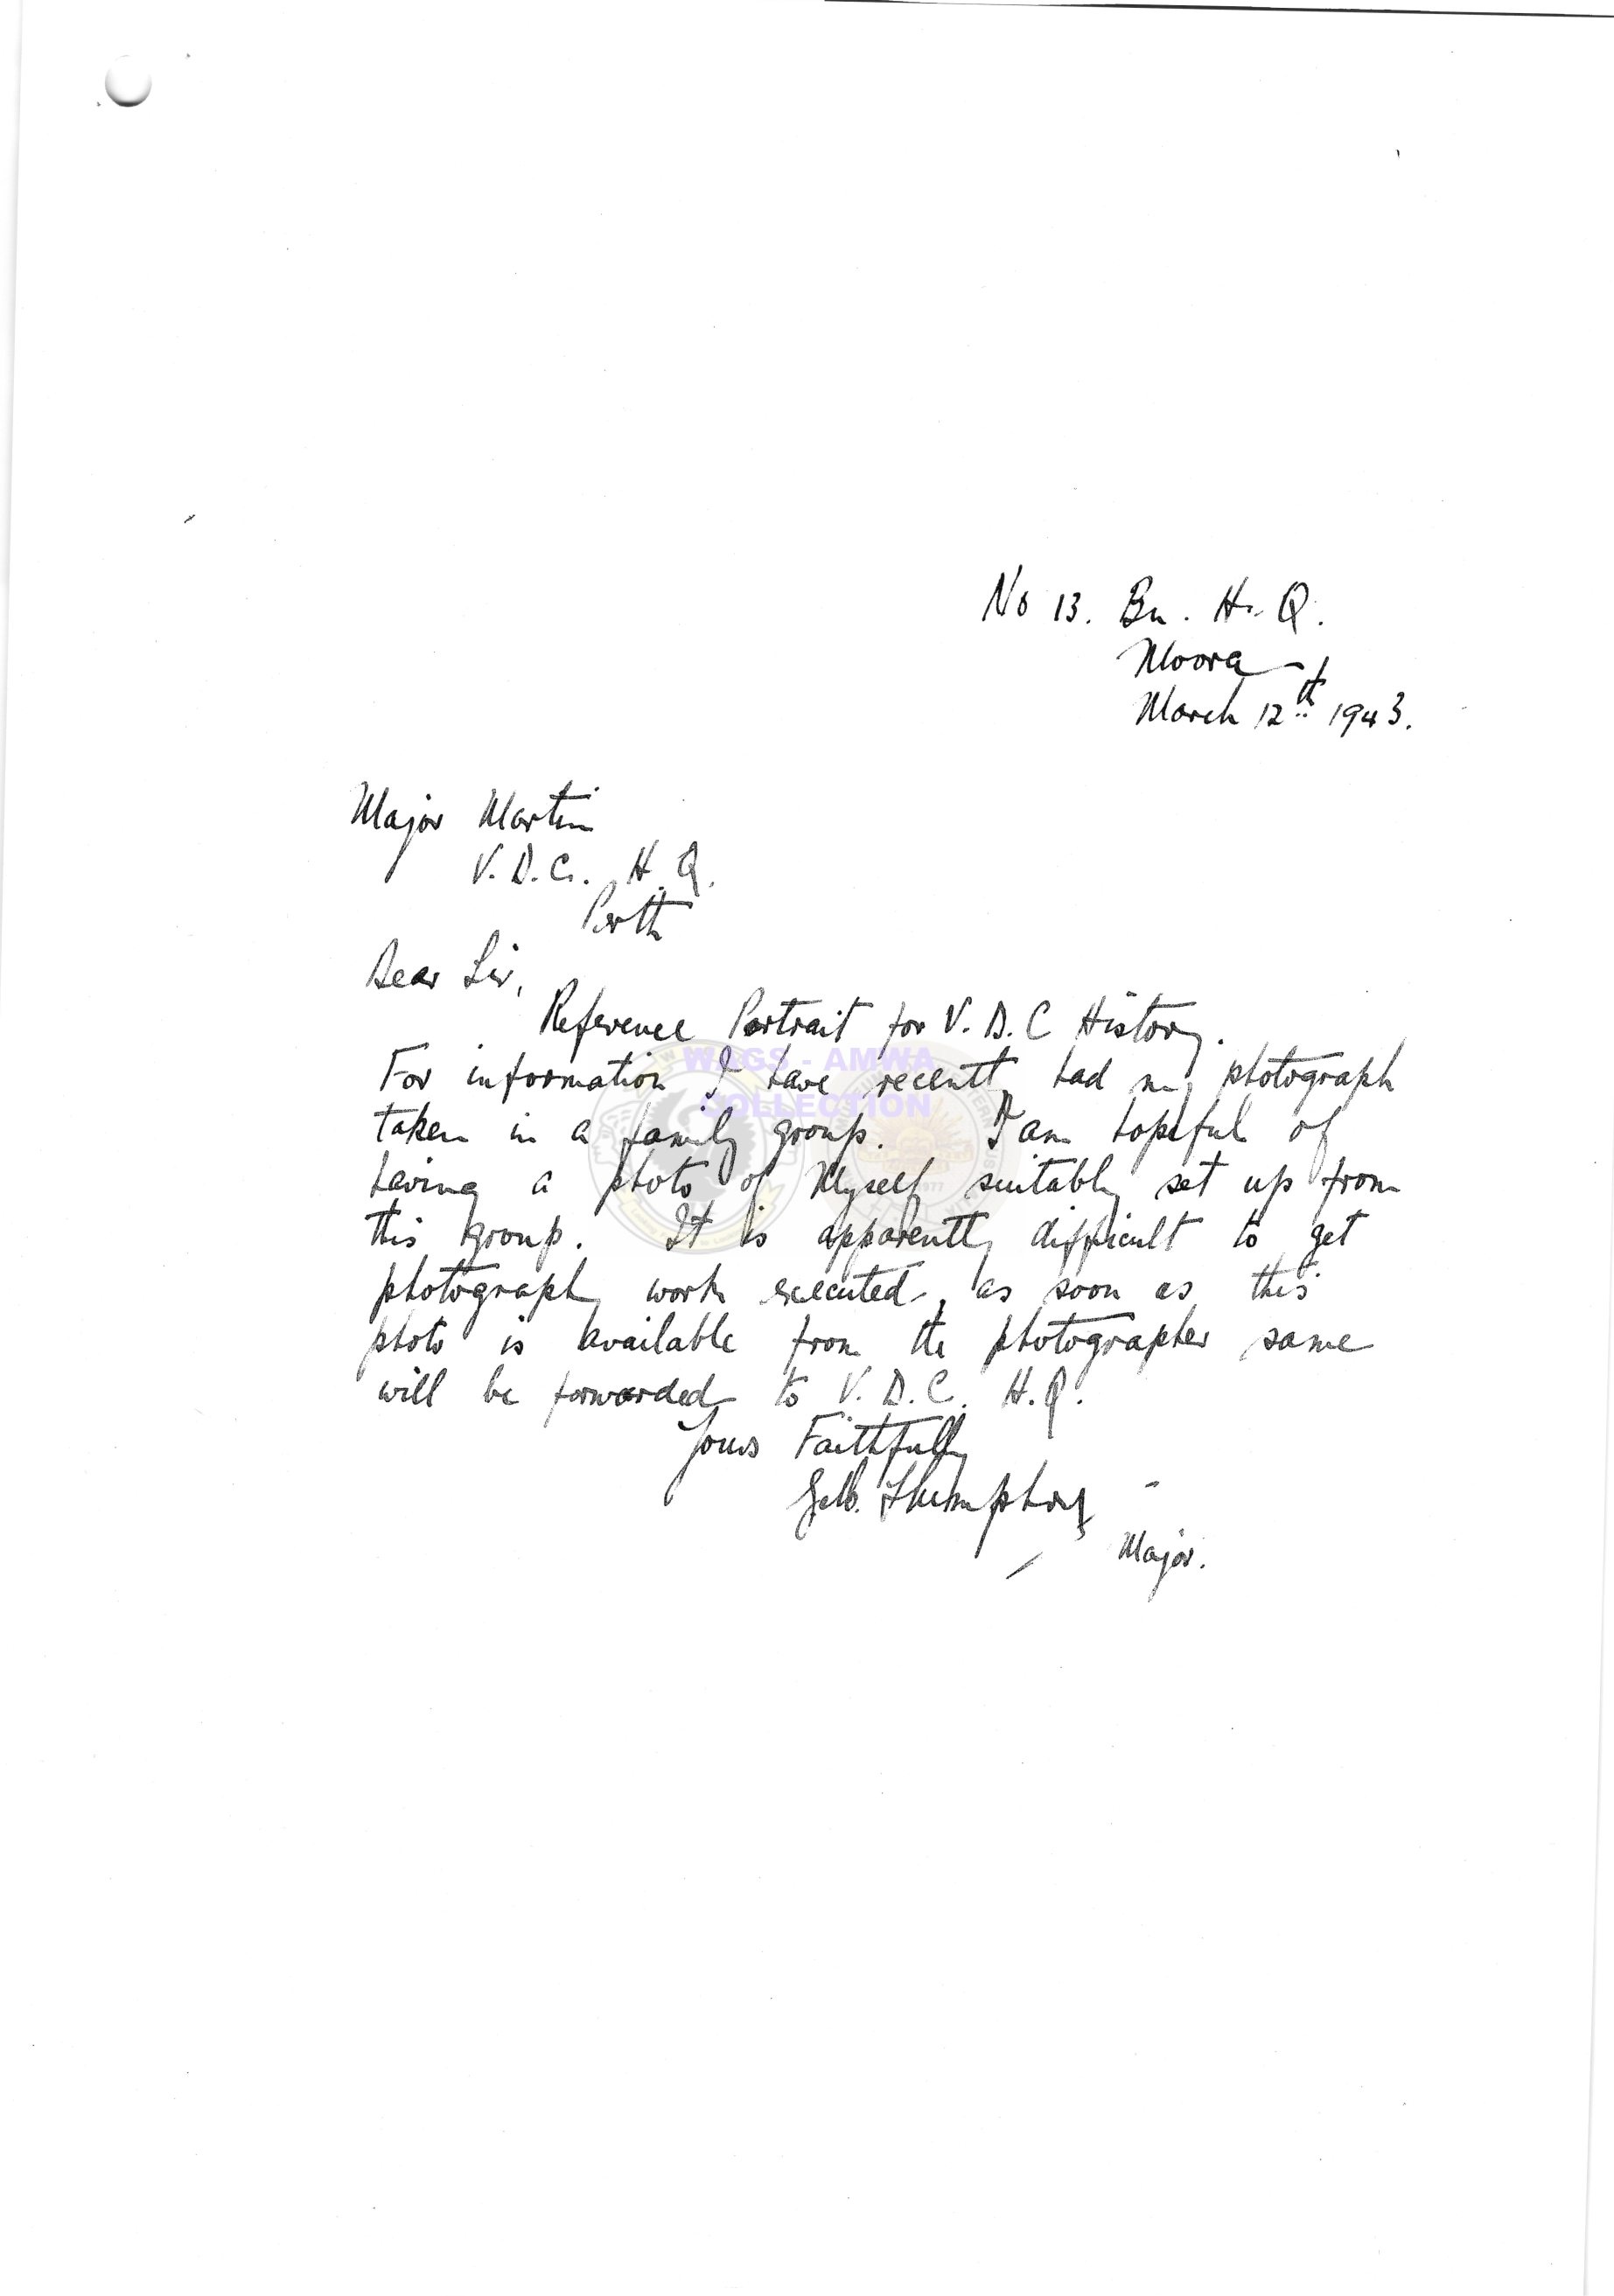 No 13. Bn. H. Q.
Moora
March 12th 1943.
Major Martin
V. D. C. H. Q.
Perth
Dear Sir,
Reference Portrait for V. D. C History.
WAGS - AMWA
COLLECTION
For information I have recently had my photograph
taken in a family group. I am hopeful of
having a photo of Myself suitably set up from
this group. It is apparently difficult to get
photography work executed, as soon as this
photo is available from the photographer same
will be forwarded to V. D. C. H. Q.
Yours Faithfully
Major.